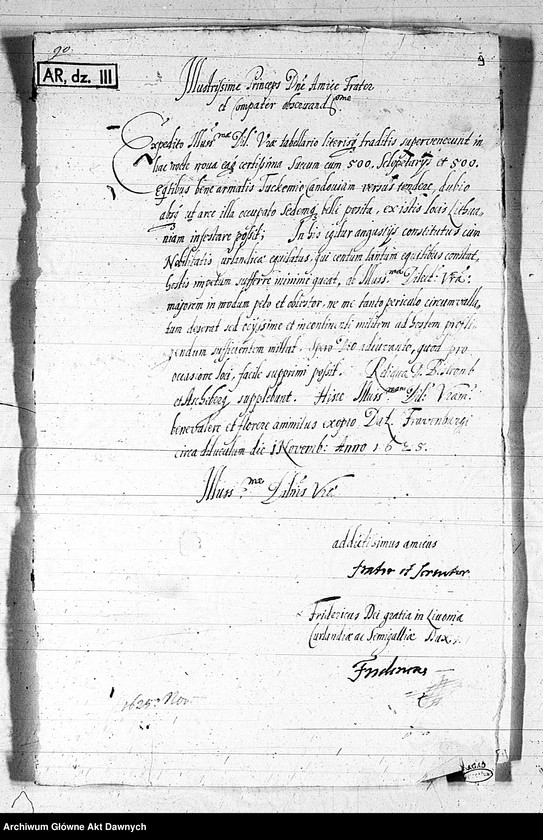 90
9
AR, dz. III
Illustrissime Princeps Dne Amice Frater
et Compater observand.me
Expedito Illuss.mae Dil. Vrae tabellario literisq traditis supervenerunt in
hac nocte nova eaq certissima Sueum cum 500. Sclopetarijs et 500.
Equitibus bene armatis Tuckomio Candouiam versus tendere, dubio
absq ut arce illa occupata Sedemq belli posita, ex istis locis Lithua,,
niam infestare possit; In his igitur angustijs constitutus cum
Nobilitatis Curlandicae equitatus, qui centum tantum equitibus constat,
hostis impetum sufferre minime queat, ab Illuss.ma Dilect. Vra
majorem in modum peto et obtestor, ne me tanto periculo circumvalla,,
tum deserat sed ocyssime et incontinenti militem ad hostem profli,,
gendum sufficientem mittat. Spero Deo adiuvante, quod pro
occasione loci, facile supprimi possit. Reliqua D. Bistromb
et Ascheberg supplebunt. Hisce Illuss.mam Dil. Vram
benevalere et florere animitus exopto Dat. Fravenburgi
circa diluculum die 1 Novemb: Anno 1625.
Illuss.mae Dilnis Vrae
addictissimus amicus
frater et servitor
Fridericus Dei gratia in Livonia
Curlandiae ac Semigalliae Dux
Fridericus
1625. Nov.
Archiwum Główne Akt Dawnych